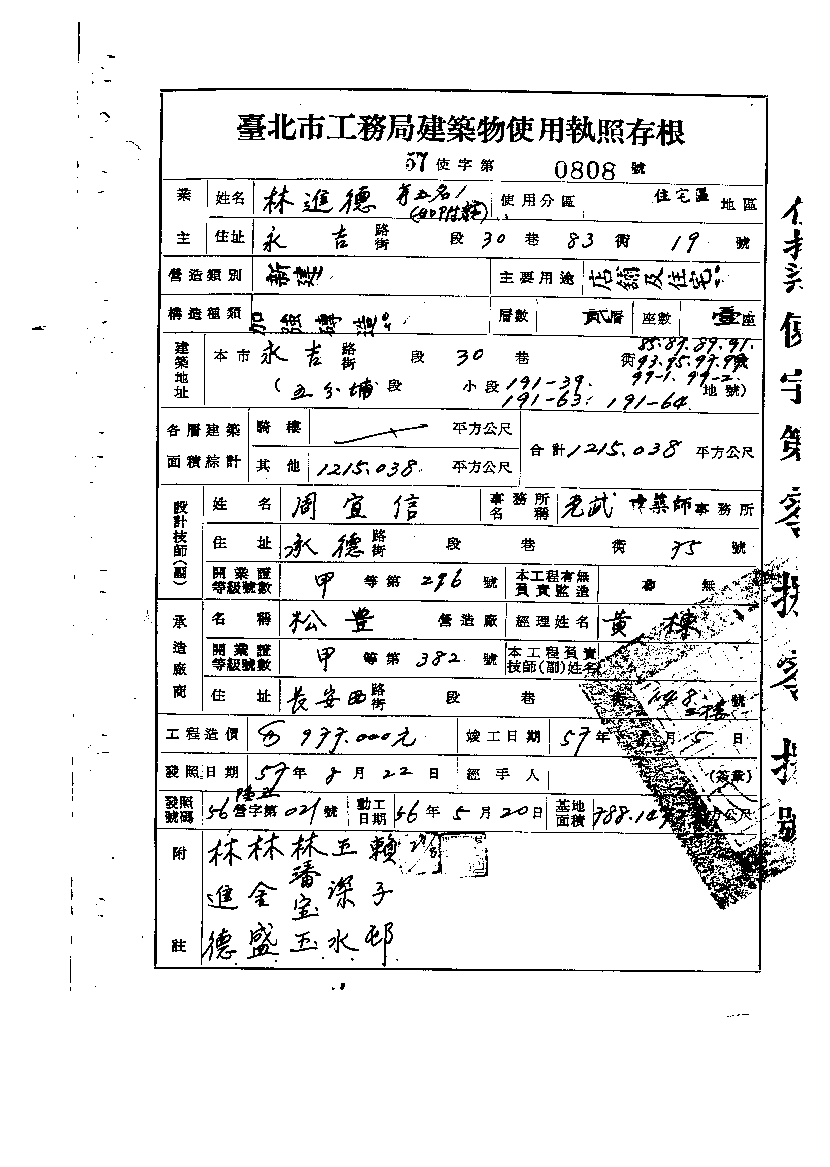 臺北市工務局建築物使用執照存根
57使字第 0808 號
業主 姓名 林進德 等五名 (如附註) 使用分區 住宅區 地區
住址 永吉路街 段 30 巷 83 衖 19 號
營造類別 新建 主要用途 店舖及住宅
構造種類 加強磚造 層數 貳層 座數 壹座
建築地址 本市 永吉路街 段 30 巷 衖 85.87.89.91.
93.95.97.99
99-1. 99-2.
(五分埔段 小段 191-39. 地號)
191-63. 191-64
各層建築面積綜計 騎樓 平方公尺 合計 1215.038 平方公尺
其他 1215.038 平方公尺
設計技師(副) 姓名 周宜信 事務所名稱 建築師事務所
住址 承德路街 段 巷 衖 號
開業證等級號數 甲等第 296 號 本工程有無負責監造 無
承造廠商 名稱 松豊 營造廠 經理姓名 黃棟
開業證等級號數 甲等第 382 號 本工程負責技師(副)姓名
住址 長安西路街 段 巷 148 號
工程造價 977.000元 竣工日期 57年 月 5 日
發照日期 57年 8 月 22 日 經手人 (簽章)
發照號碼 56 營字第 021 號 動工日期 56年 5 月 20 日 基地面積 平方公尺
附註 林進德
林金盛
林潘宝玉
王深水
賴子邨
使字第
號